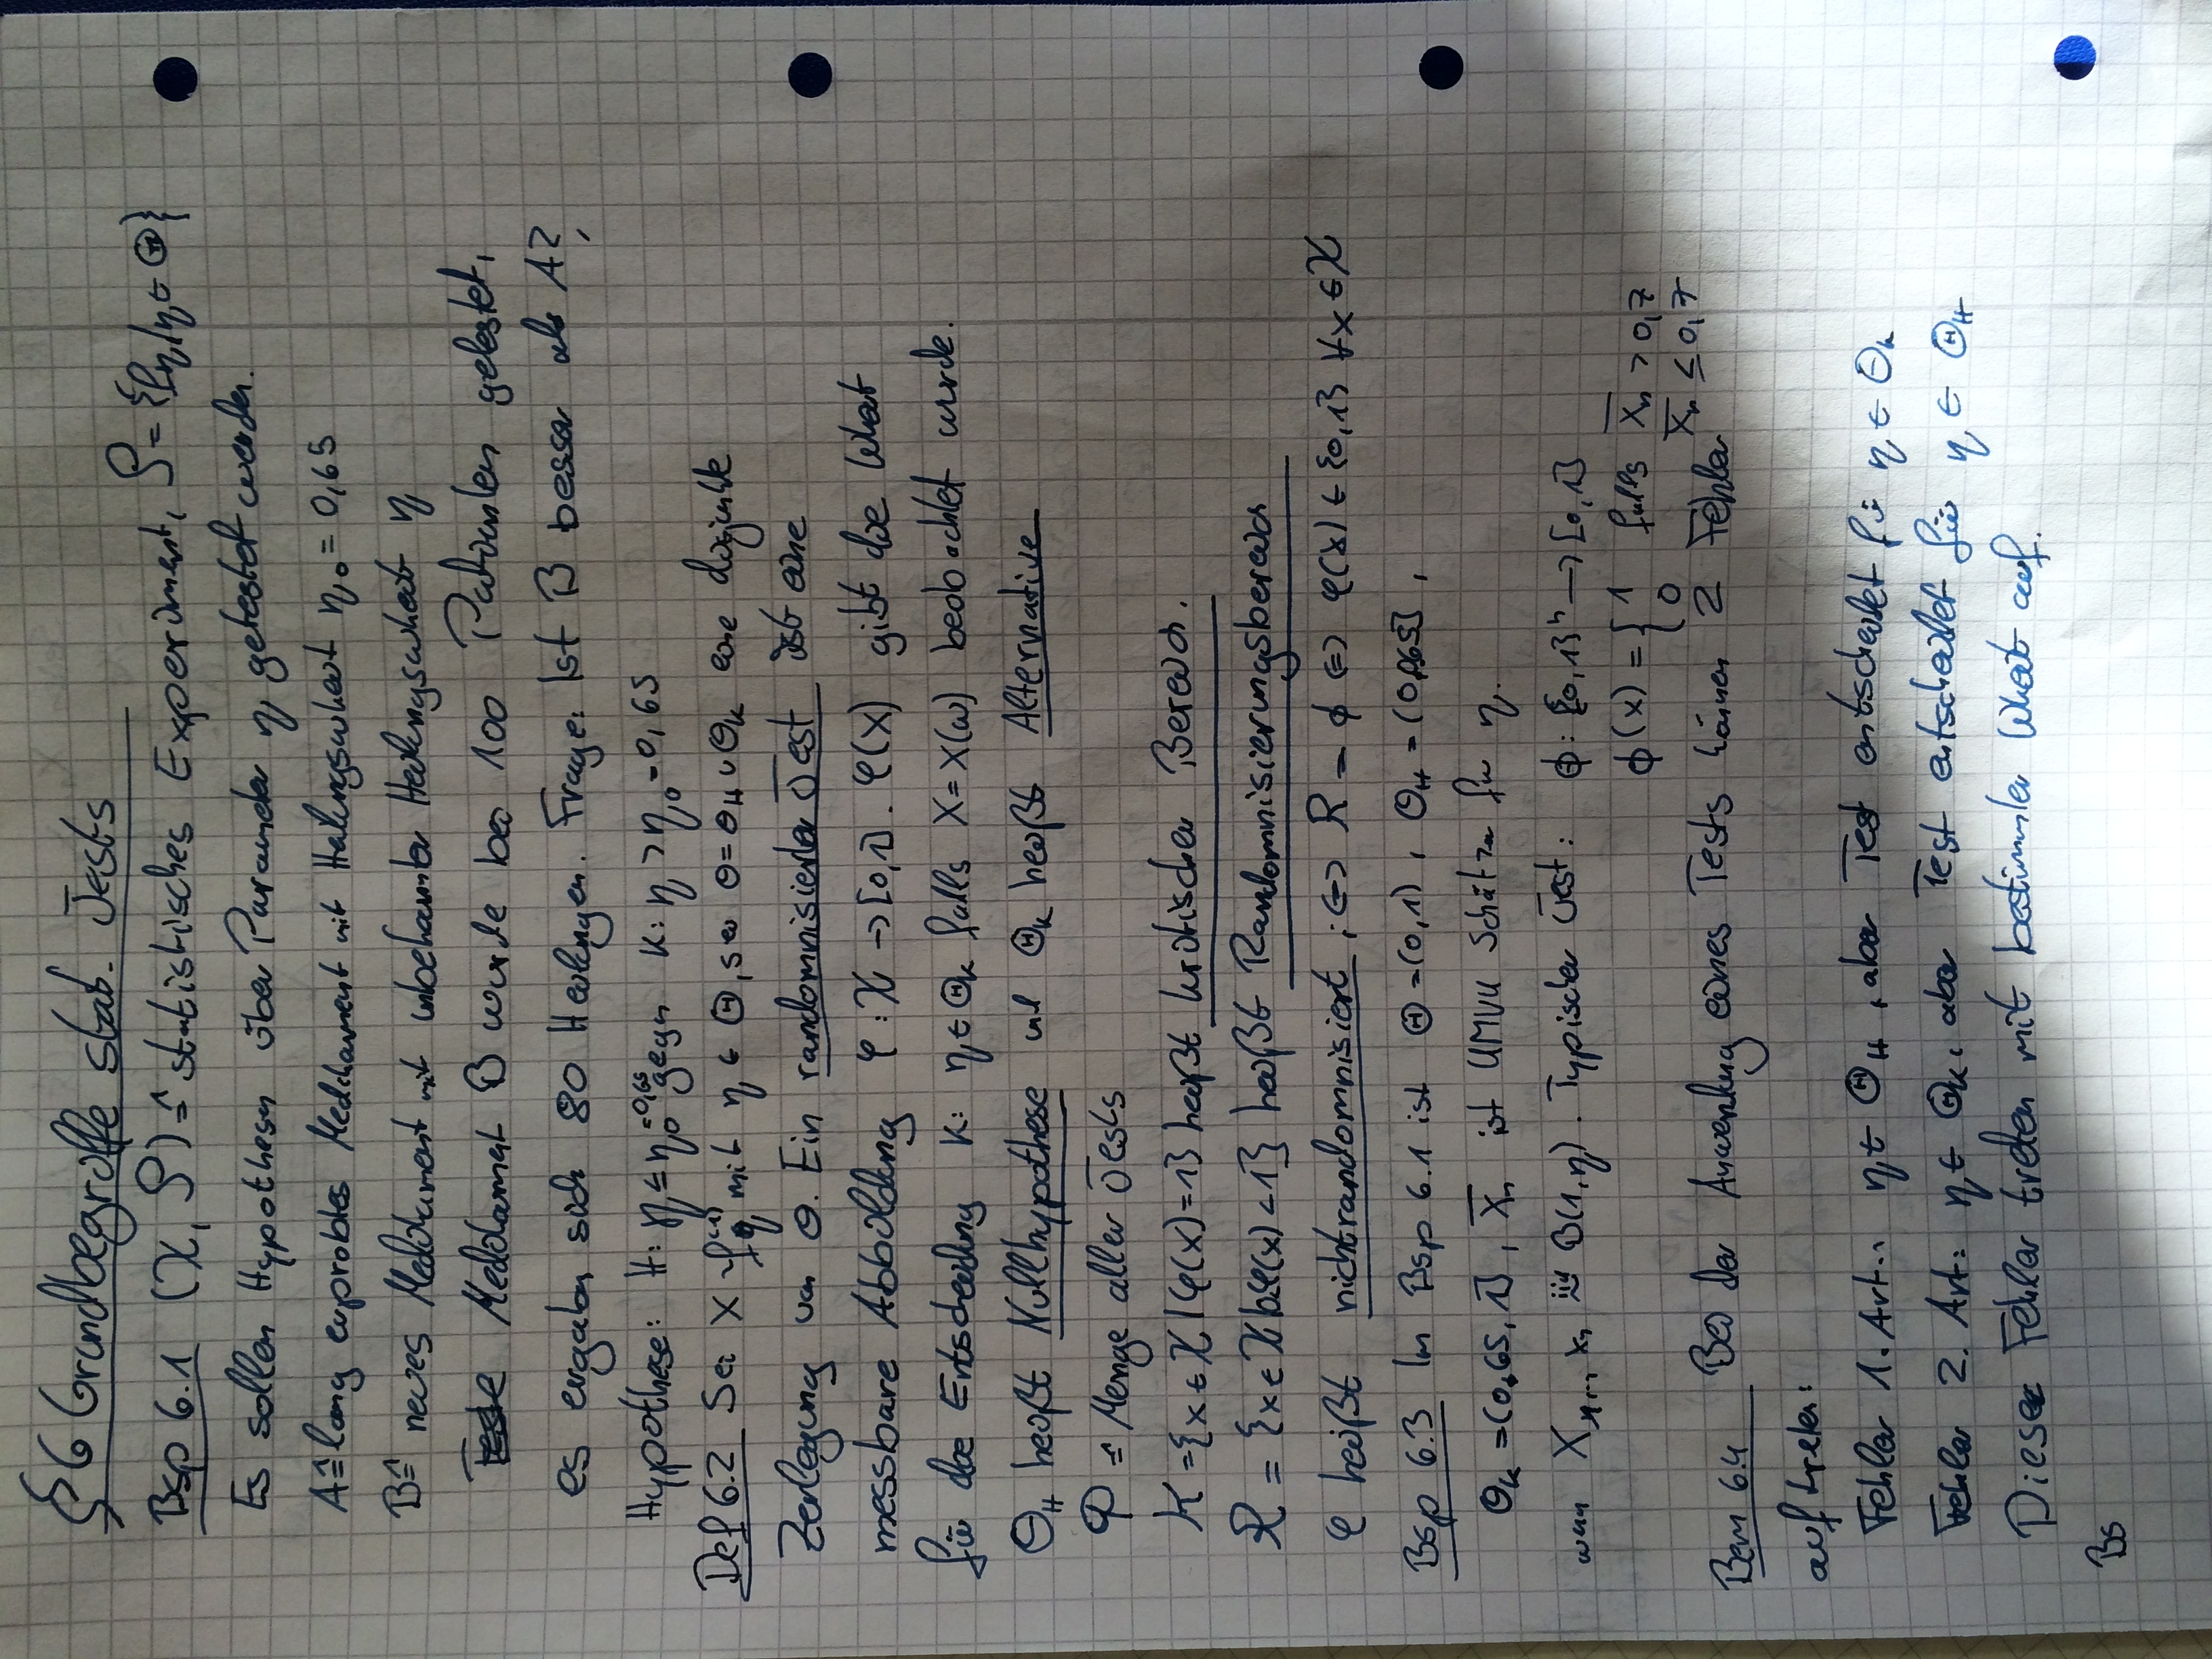 §6 Grundbegriffe stat. Tests
Bsp 6.1 (X, P) ≙ statistisches Experiment, P = {P_η | η ∈ Θ}
Es sollen Hypothesen über Parameter η getestet werden.
A ≙ lang erprobtes Medikament mit Heilungswkeit η_0 = 0,65
B ≙ neues Medikament mit unbekannter Heilungswkeit η
Medikament B wurde bei 100 Patienten getestet,
es ergaben sich 80 Heilungen. Frage: Ist B besser als A?,
Hypothese: H: η ≤ η_0 = 0,65 gegen K: η > η_0 = 0,65
Def 6.2 Sei X mit η ∈ Θ, sei Θ = Θ_H ∪ Θ_K eine disjunkte
Zerlegung von Θ. Ein randomnisierter Test ist eine
messbare Abbildung φ: X → [0,1]. φ(x) gibt die Wkeit
für die Entscheidung K: η ∈ Θ_K falls X = X(ω) beobachtet wurde.
Θ_H heißt Nullhypothese und Θ_K heißt Alternative
Φ ≙ Menge aller Tests
K = {x ∈ X | φ(x) = 1} heißt kritischer Bereich.
R = {x ∈ X | 0 < φ(x) < 1} heißt Randomnisierungsbereich
φ heißt nichtrandomnisiert :⇔ R = ∅ ⇔ φ(x) ∈ {0,1} ∀x ∈ X
Bsp 6.3 In Bsp 6.1 ist Θ = (0,1), Θ_H = (0,0,65],
Θ_K = (0,65,1), X̄_n ist UMVU Schätzer für η.
wenn X_1,... X_n iid B(1,η). Typischer Test: ϕ: {0,1}^n → [0,1]
ϕ(x) = { 1 falls X̄_n > 0,7
0 X̄_n ≤ 0,7
Bem 6.4 Bei der Anwendung eines Tests können 2 Fehler
auftreten:
Fehler 1. Art: η ∈ Θ_H, aber Test entscheidet für η ∈ Θ_K
Fehler 2. Art: η ∈ Θ_K, aber Test entscheidet für η ∈ Θ_H
Diese Fehler treten mit bestimmter Wkeit auf.
Bs